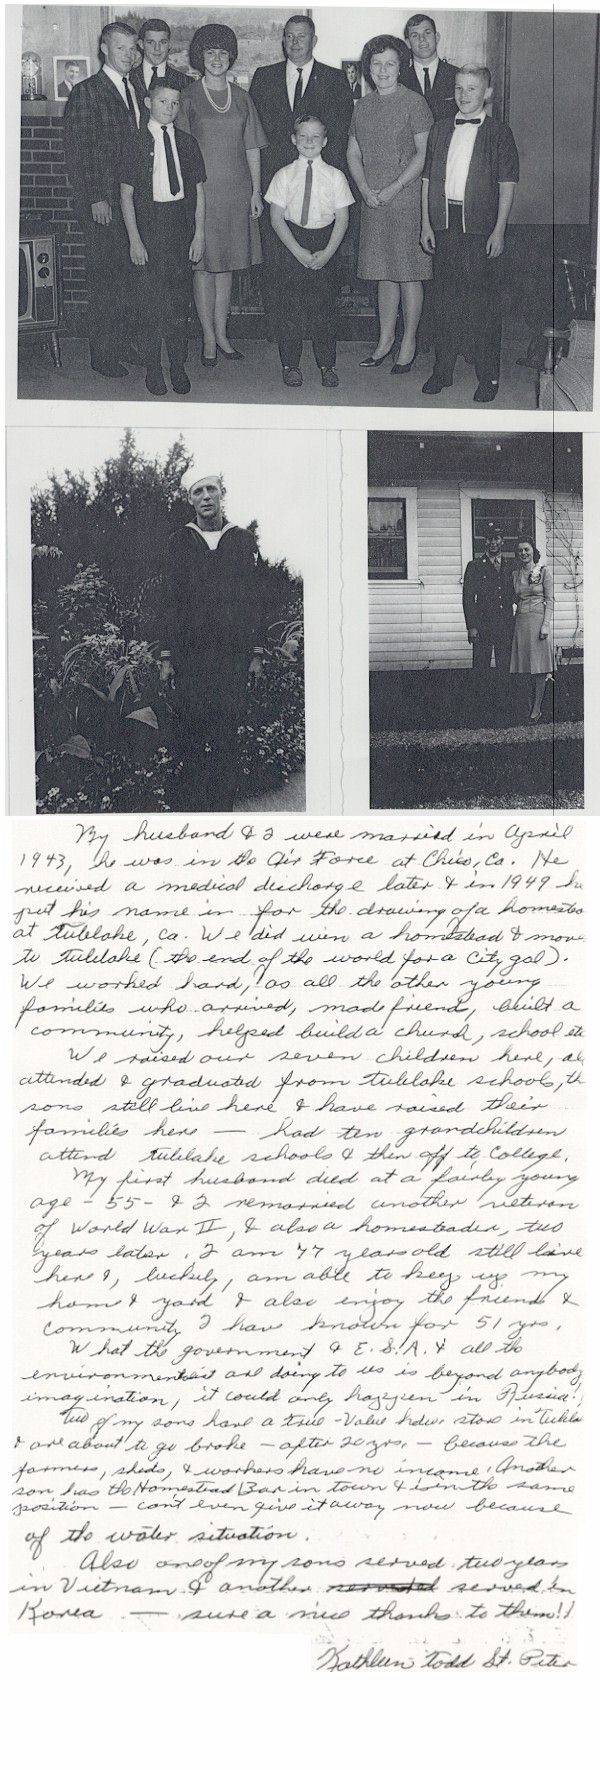 My husband & I were married in April
1943, he was in the Air Force at Chico, Ca. He
received a medical discharge later & in 1949 he
put his name in for the drawing of a homestea
at Tulelake, Ca. We did win a homestead & move
to Tulelake (the end of the world for a city gal).
We worked hard, as all the other young
families who arrived, made friend, built a
community, helped build a church, school etc
We raised our seven children here, all
attended & graduated from Tulelake schools, th
sons still live here & have raised their
families here — had ten grandchildren
attend Tulelake schools & then off to College.
My first husband died at a fairly young
age - 55 - & I remarried another veteran
of World War II, & also a homesteader, two
years later. I am 77 years old still live
here &, luckily, am able to keep up my
home & yard & also enjoy the friends &
community I have known for 51 yrs.
What the government & E.S.A. & all the
environmentalist are doing to us is beyond anybody
imagination, it could only happen in Russia!
Two of my sons have a True-Value hdw. store in Tulela
& are about to go broke - after 20 yrs. - because the
farmers, sheds, & workers have no income. Another
son has the Homestead Bar in town & is in the same
position - can't even give it away now because
of the water situation.
Also one of my sons served two years
in Vietnam & another served in
Korea — sure a nice thanks to them!!
Kathleen Todd St. Peter